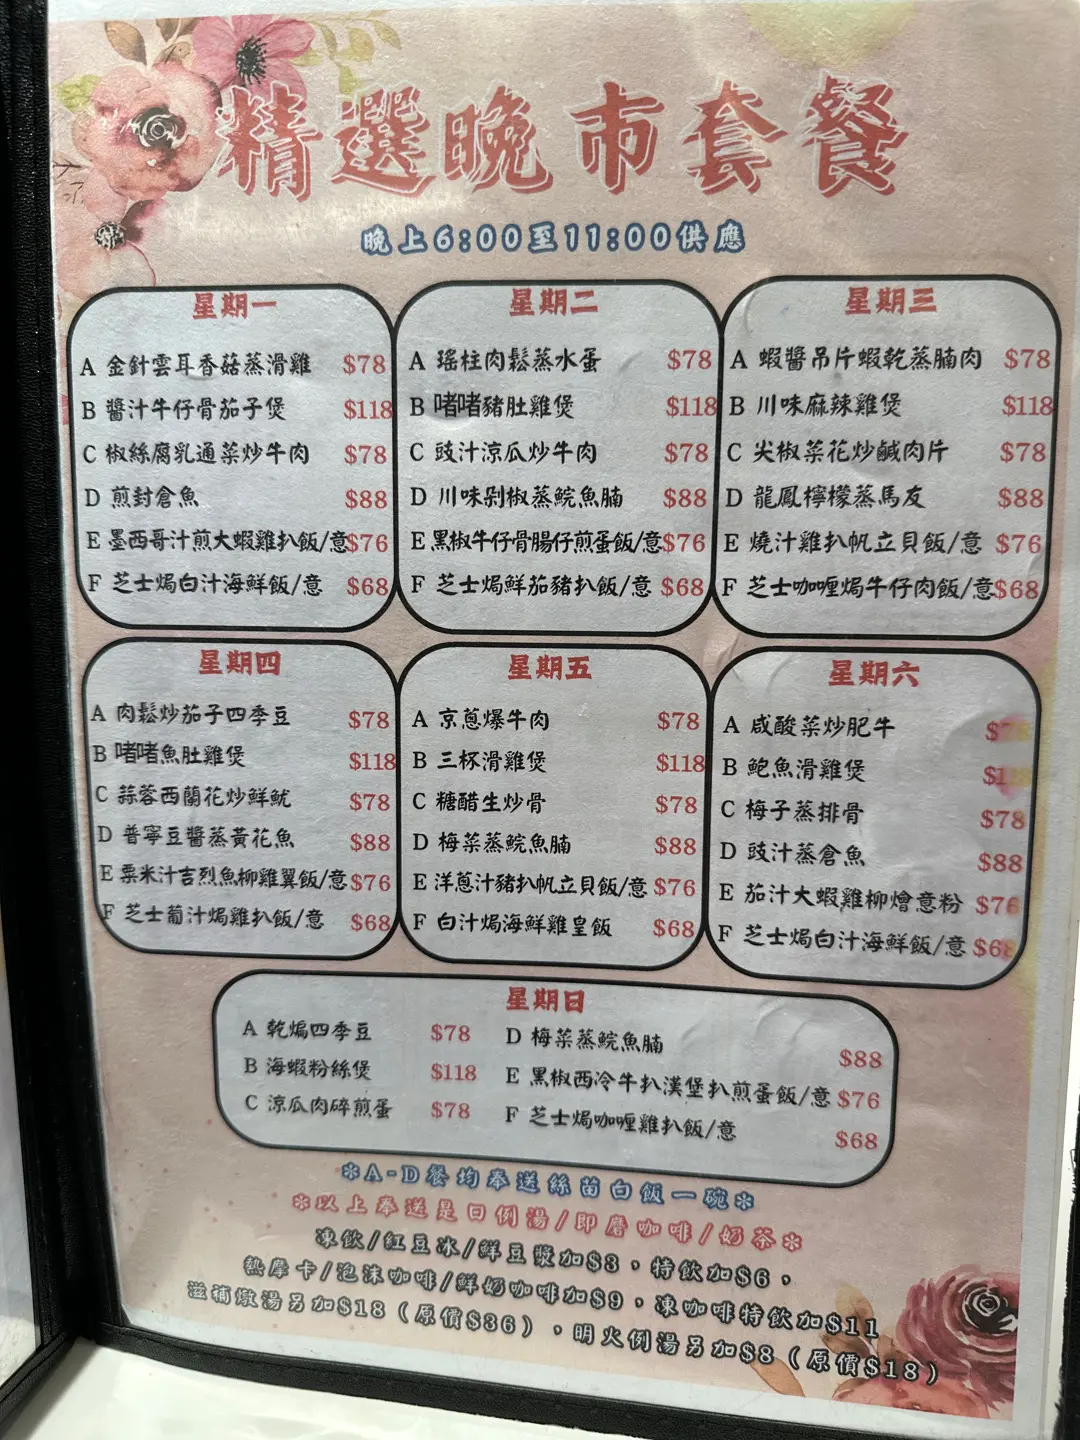 精選晚市套餐
晚上6:00至11:00供應
星期一
A 金針雲耳香菇蒸滑雞 $78
B 醬汁牛仔骨茄子煲 $118
C 椒絲腐乳通菜炒牛肉 $78
D 煎封倉魚 $88
E 墨西哥汁煎大蝦雞扒飯/意 $76
F 芝士焗白汁海鮮飯/意 $68
星期二
A 瑤柱肉鬆蒸水蛋 $78
B 啫啫豬肚雞煲 $118
C 豉汁涼瓜炒牛肉 $78
D 川味剁椒蒸鯇魚腩 $88
E 黑椒牛仔骨腸仔煎蛋飯/意 $76
F 芝士焗鮮茄豬扒飯/意 $68
星期三
A 蝦醬吊片蝦乾蒸腩肉 $78
B 川味麻辣雞煲 $118
C 尖椒菜花炒鹹肉片 $78
D 龍鳳檸檬蒸馬友 $88
E 燒汁雞扒帆立貝飯/意 $76
F 芝士咖喱焗牛仔肉飯/意 $68
星期四
A 肉鬆炒茄子四季豆 $78
B 啫啫魚肚雞煲 $118
C 蒜蓉西蘭花炒鮮魷 $78
D 普寧豆醬蒸黃花魚 $88
E 粟米汁吉烈魚柳雞翼飯/意 $76
F 芝士葡汁焗雞扒飯/意 $68
星期五
A 京蔥爆牛肉 $78
B 三杯滑雞煲 $118
C 糖醋生炒骨 $78
D 梅菜蒸鯇魚腩 $88
E 洋蔥汁豬扒帆立貝飯/意 $76
F 白汁焗海鮮雞皇飯 $68
星期六
A 咸酸菜炒肥牛 $78
B 鮑魚滑雞煲 $118
C 梅子蒸排骨 $78
D 豉汁蒸倉魚 $88
E 茄汁大蝦雞柳燴意粉 $76
F 芝士焗白汁海鮮飯/意 $68
星期日
A 乾煸四季豆 $78
B 海蝦粉絲煲 $118
C 涼瓜肉碎煎蛋 $78
D 梅菜蒸鯇魚腩 $88
E 黑椒西冷牛扒漢堡扒煎蛋飯/意 $76
F 芝士焗咖喱雞扒飯/意 $68
*A-D餐均奉送絲苗白飯一碗*
*以上奉送是日例湯/即磨咖啡/奶茶*
凍飲/紅豆冰/鮮豆漿加$3，特飲加$6，
熱摩卡/泡沫咖啡/鮮奶咖啡加$9，凍咖啡特飲加$11
滋補燉湯另加$18（原價$36），明火例湯另加$8（原價$18）